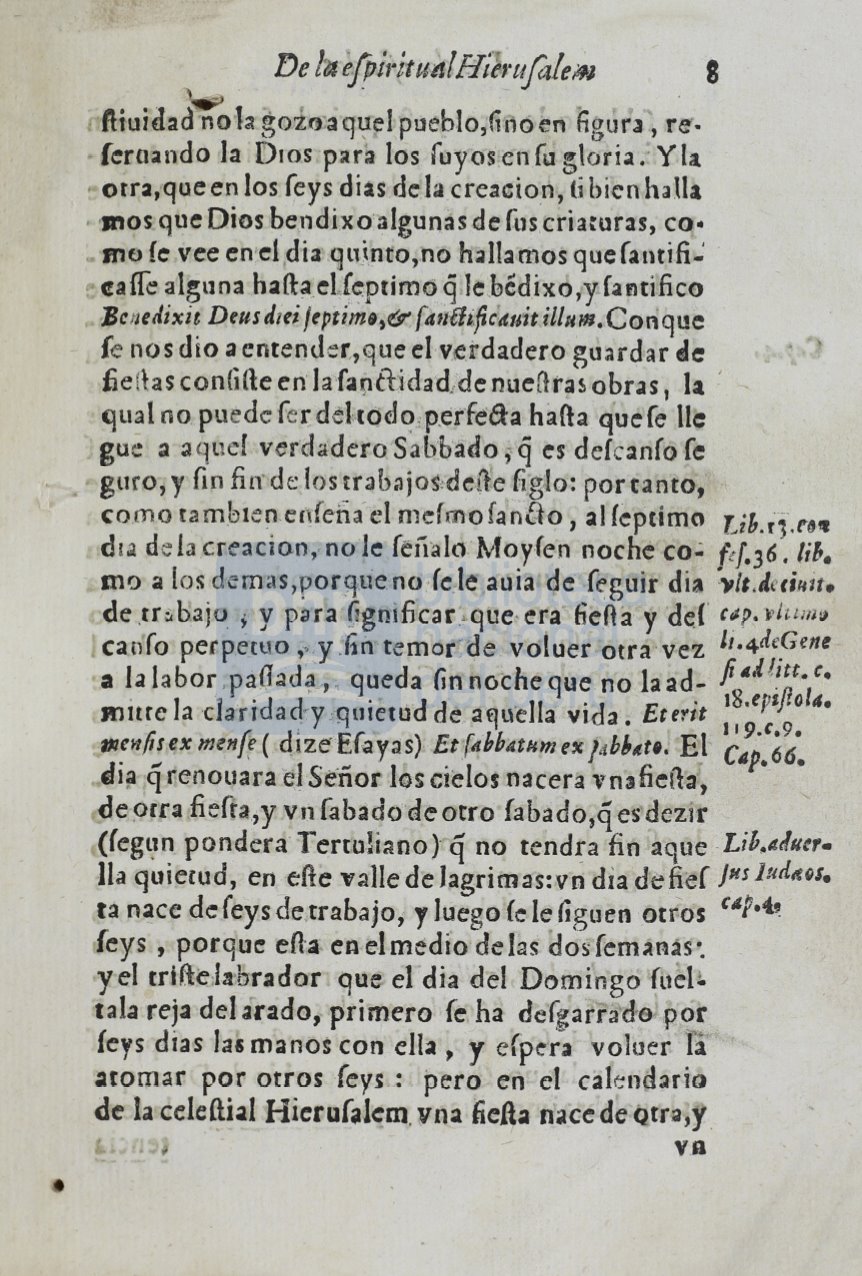 De la eſpiritual Hieruſalem 8
ſtiuidad no la gozo aquel pueblo, ſino en figura, re-
ſeruando la Dios para los ſuyos en ſu gloria. Y la
otra, que en los ſeys dias de la creacion, ſi bien halla
mos que Dios bendixo algunas de ſus criaturas, co-
mo ſe vee en el dia quinto, no hallamos que ſantifi-
caſſe alguna haſta el ſeptimo q̃ le bẽdixo, y ſantifico
Benedixit Deus diei ſeptimo, & ſanctificauit illum. Con que
ſe nos dio a entender, que el verdadero guardar de
fieſtas conſiſte en la ſanctidad de nueſtras obras, la
qual no puede ſer del todo perfecta haſta que ſe lle
gue a aquel verdadero Sabbado, q̃ es deſcanſo ſe
guro, y ſin fin de los trabajos deſte ſiglo: por tanto,
como tambien enſeña el meſmo ſancto, al ſeptimo
dia de la creacion, no le ſeñalo Moyſen noche co-
mo a los demas, porque no ſe le auia de ſeguir dia
de trabajo, y para ſignificar que era fieſta y deſ
canſo perpetuo, y ſin temor de voluer otra vez
a la labor paſſada, queda ſin noche que no la ad-
mitte la claridad y quietud de aquella vida. Et erit
menſis ex menſe ( dize Eſayas) Et ſabbatum ex ſabbato. El
dia q̃ renouara el Señor los cielos nacera vna fieſta,
de otra fieſta, y vn ſabado de otro ſabado, q̃ es dezir
(ſegun pondera Tertuliano) q̃ no tendra fin aque
lla quietud, en eſte valle de lagrimas: vn dia de fieſ
ta nace de ſeys de trabajo, y luego ſe le ſiguen otros
ſeys, porque eſta en el medio de las dos ſemanas:
y el triſte labrador que el dia del Domingo ſuel-
ta la reja del arado, primero ſe ha deſgarrado por
ſeys dias las manos con ella, y eſpera voluer la
a tomar por otros ſeys: pero en el calendario
de la celeſtial Hieruſalem vna fieſta nace de otra, y
vn
Lib. 13. con
feſ. 36. lib.
vlt. de ciuit.
cap. vltimo
li. 4 de Gene
ſi ad litt. c.
18. epiſtola.
119. c. 9.
Cap. 66.
Lib. aduer-
ſus Iudæos.
cap. 4.